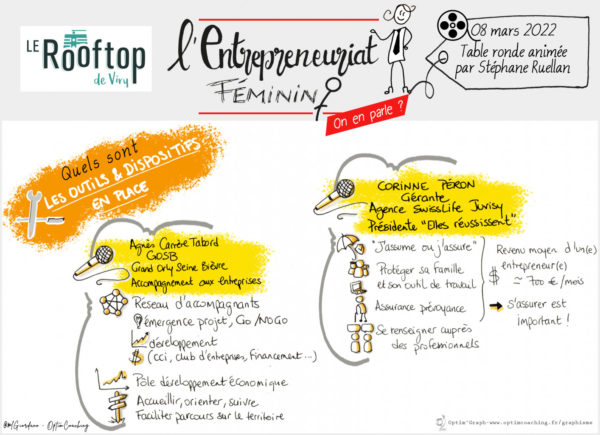 LE
Rooftop
de Viry
l'Entrepreneuriat
FÉMININ
On en parle ?
08 mars 2022
Table ronde animée
par Stéphane Ruellan
Quels sont
LES OUTILS & DISPOSITIFS
EN PLACE
Agnès Carrère Tabord
GOSB
Grand Orly Seine Bièvre
Accompagnement aux entreprises
Réseau d'accompagnants
émergence projet, Go/NoGo
développement
$ (CCI, club d'entreprises, financement...)
Pôle développement économique
Accueillir, orienter, suivre
Faciliter parcours sur le territoire
CORINNE PÉRON
Gérante
Agence SwissLife Juvisy
Présidente "Elles réussissent"
"J'assume ou j'assure"
Protéger sa famille
et son outil de travail
Assurance prévoyance
Se renseigner auprès
des professionnels
Revenu moyen d'un(e)
entrepreneur(e)
$ ≃ 700 €/mois
→ S'assurer est
important !
Giordano - OptimCoaching
Optim'Graph-www.optimcoaching.fr/graphisme